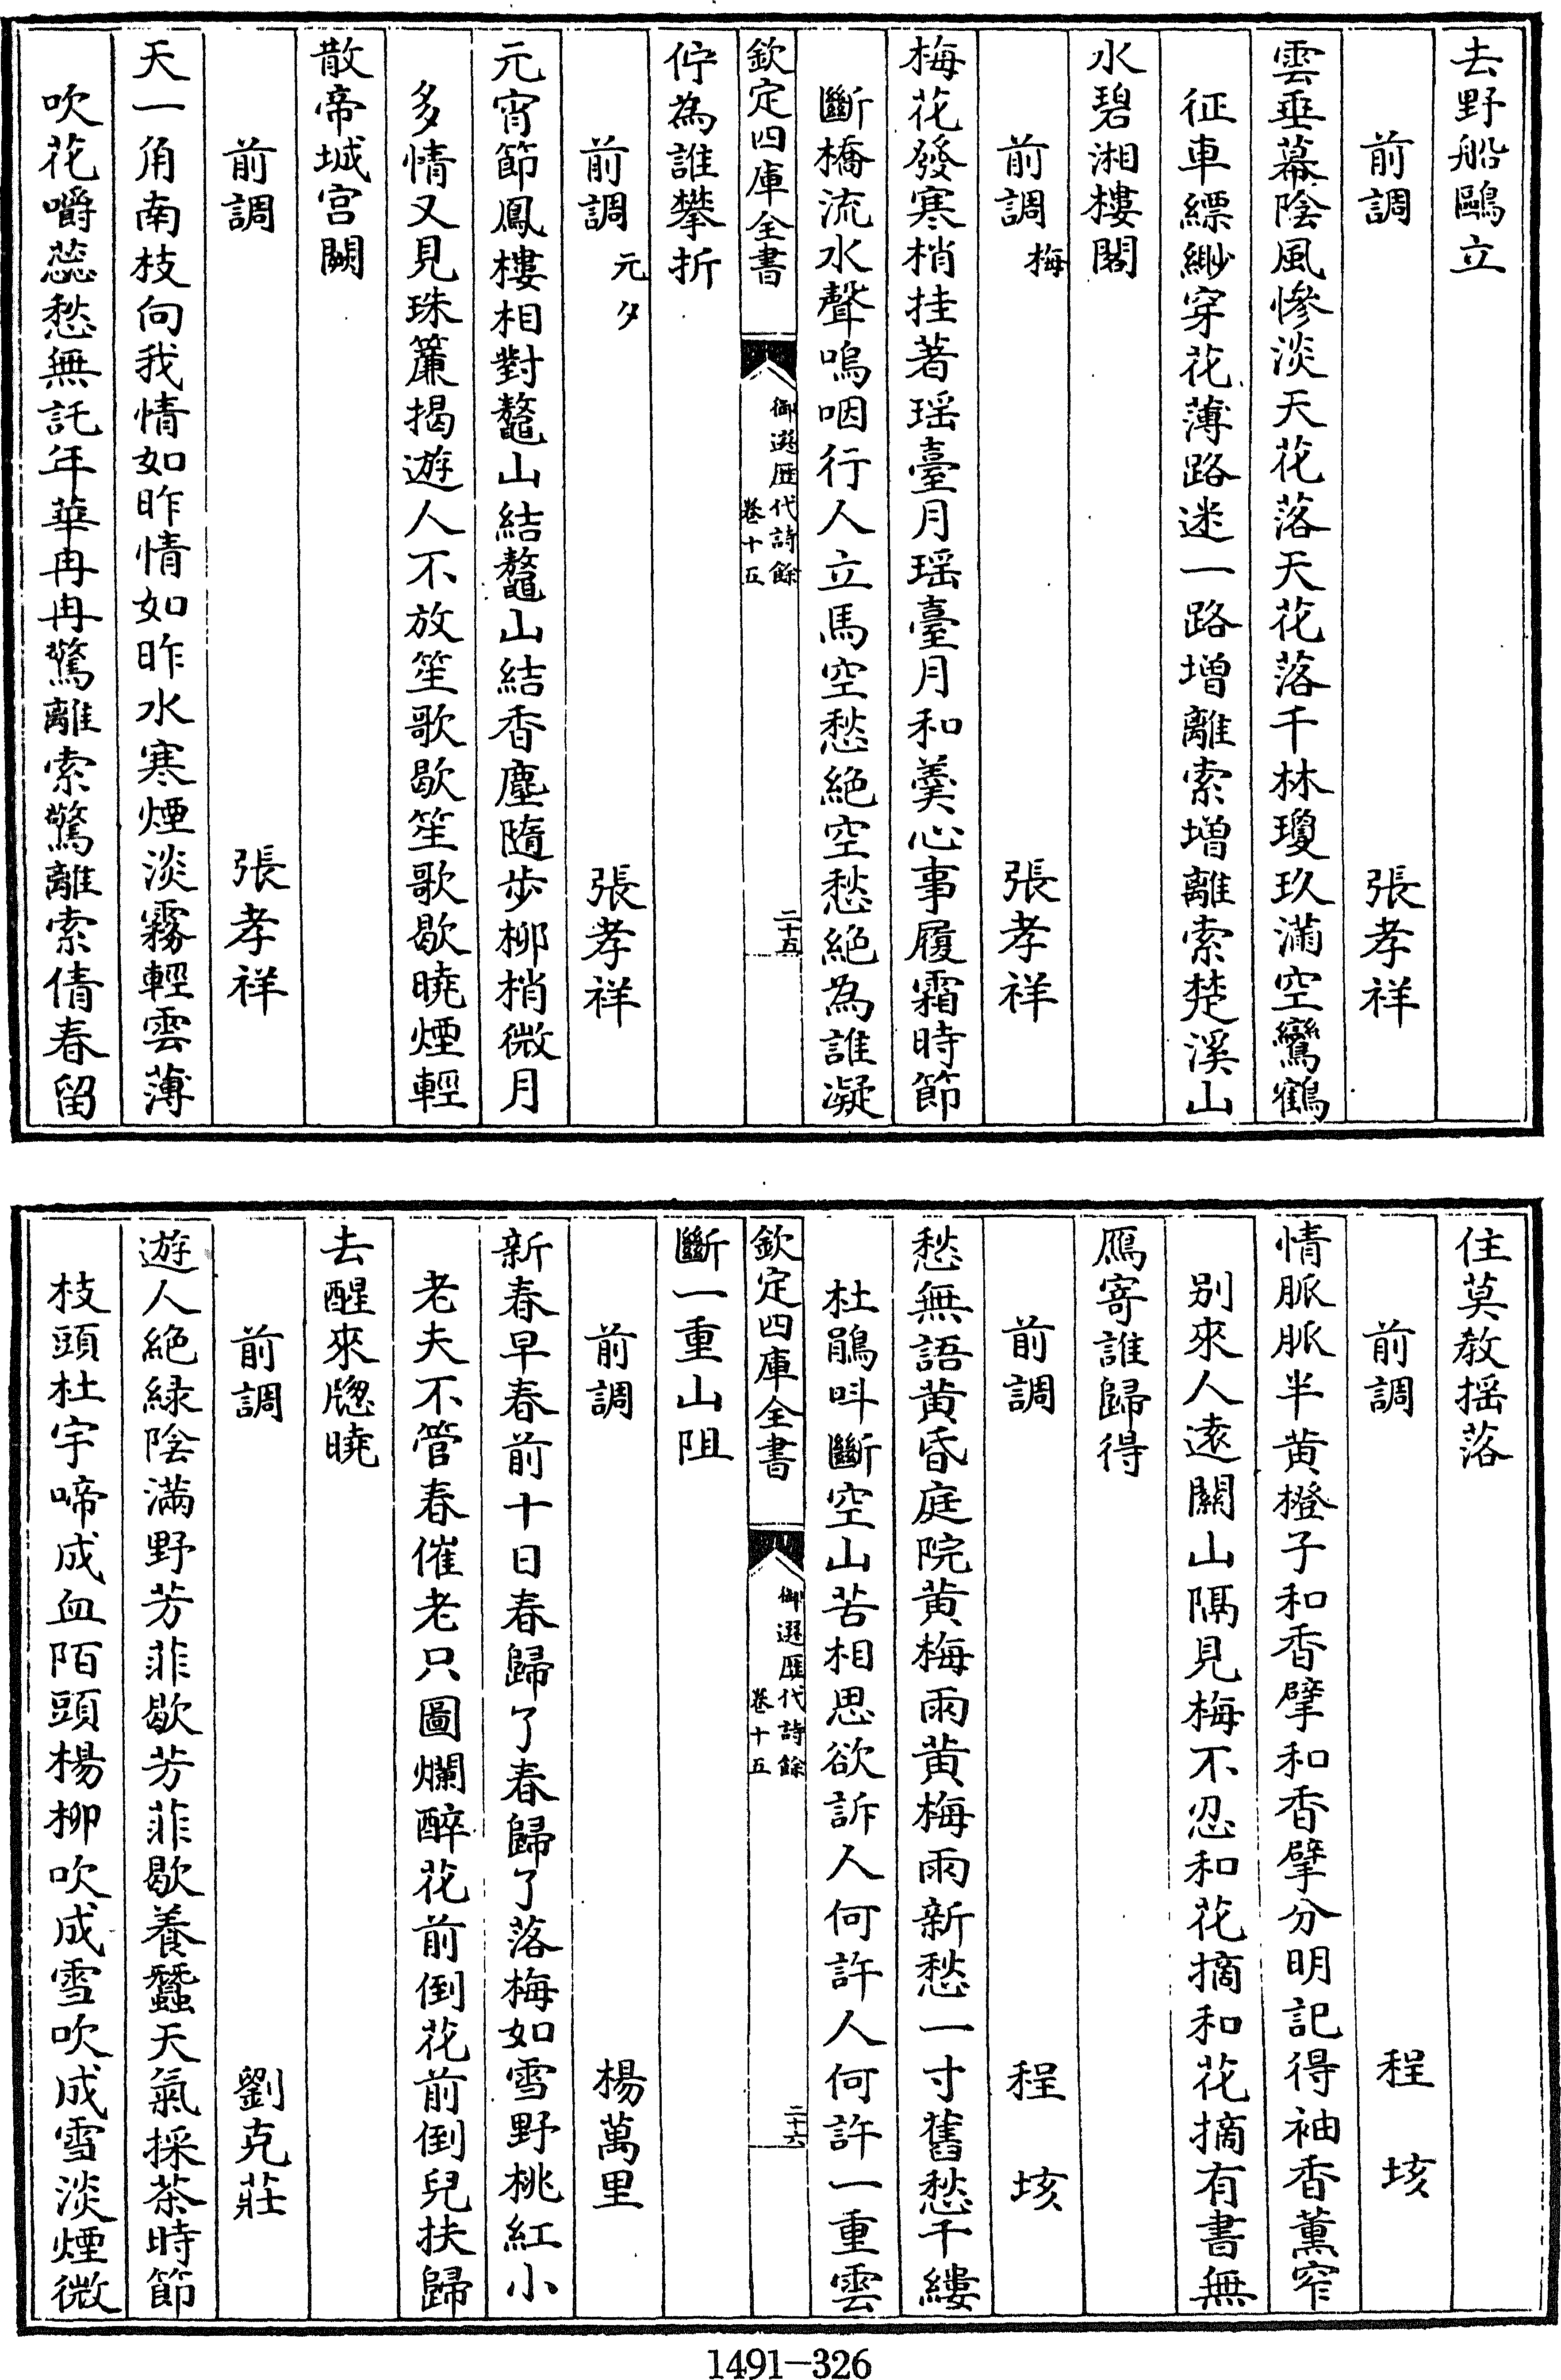 去野船鷗立
前調 張孝祥
雲垂幕陰風慘淡天花落天花落千林瓊玖滿空鸞鶴
征車縹緲穿花薄路迷一路增離索增離索楚溪山
水碧湘樓閣
前調 梅 張孝祥
梅花發寒梢挂著瑶臺月瑶臺月和羮心事履霜時節
斷橋流水聲嗚咽行人立馬空愁絶空愁絶為誰凝
欽定四庫全書 御選歷代詩餘 卷十五 二十五
佇為誰攀折
前調 元夕 張孝祥
元宵節鳳樓相對鼇山結鼇山結香塵隨步柳梢微月
多情又見珠簾揭遊人不放笙歌歇笙歌歇曉煙輕
散帝城宮闕
前調 張孝祥
天一角南枝向我情如昨情如昨水寒煙淡霧輕雲薄
吹花嚼蕊愁無託年華冉冉驚離索驚離索倩春留
住莫教搖落
前調 程垓
情脈脈半黄橙子和香擘和香擘分明記得袖香薰窄
别來人遠關山隔見梅不忍和花摘和花摘有書無
鴈寄誰歸得
前調 程垓
愁無語黄昏庭院黄梅雨黄梅雨新愁一寸舊愁千縷
杜鵑呌斷空山苦相思欲訴人何許人何許一重雲
欽定四庫全書 御選歷代詩餘 卷十五 二十六
斷一重山阻
前調 楊萬里
新春早春前十日春歸了春歸了落梅如雪野桃紅小
老夫不管春催老只圖爛醉花前倒花前倒兒扶歸
去醒來牕曉
前調 劉克莊
遊人絶緑陰滿野芳菲歇芳菲歇養蠶天氣採茶時節
枝頭杜宇啼成血陌頭楊柳吹成雪吹成雪淡煙微
1491-326